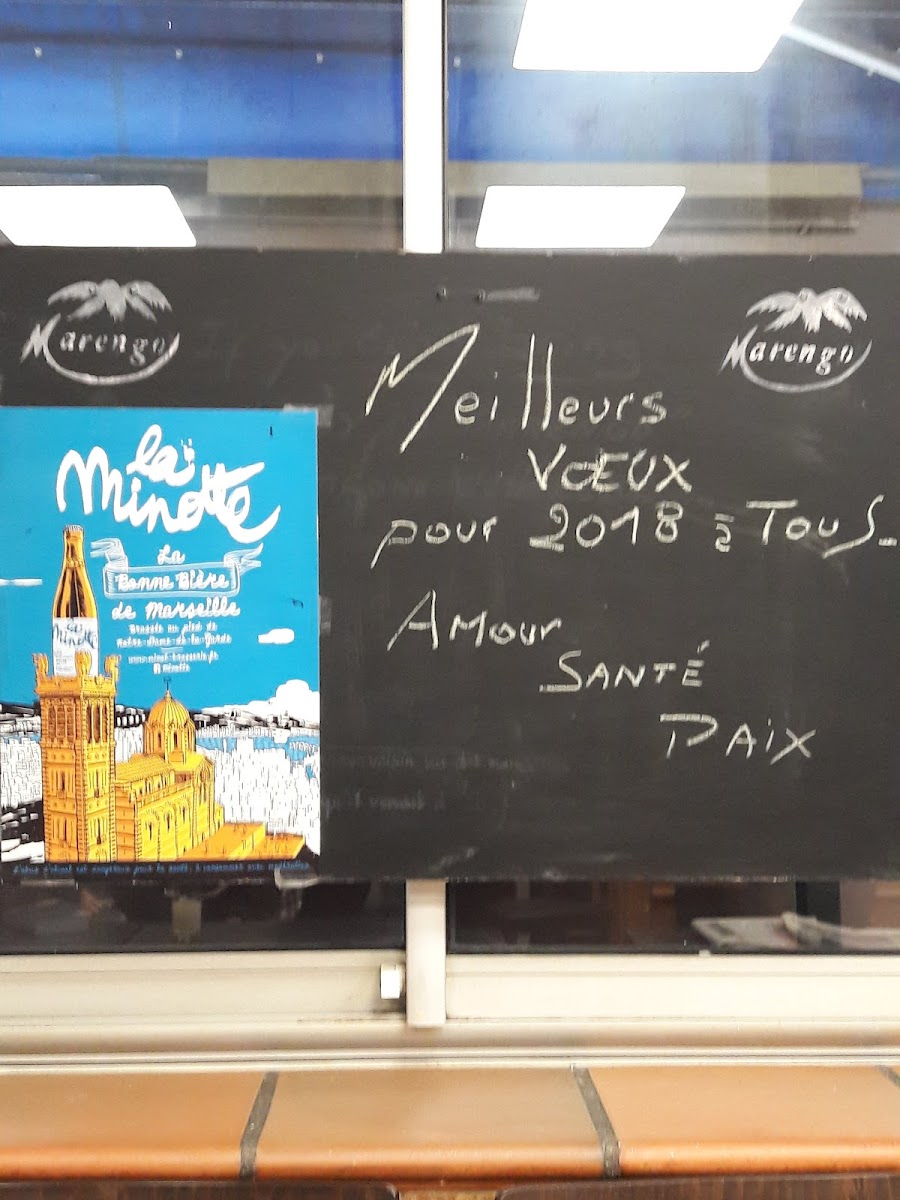 Marengo
Marengo
Meilleurs
VŒUX
pour 2018 à Tous_
AMour
SANTÉ
PAix
la
Minotte
La
Bonne Bière
de Marseille
Brassée au pied de
Notre-Dame-de-la-Garde
la
Minotte